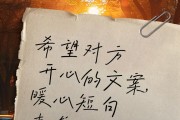 希望对方
开心的文案,
暖心短句